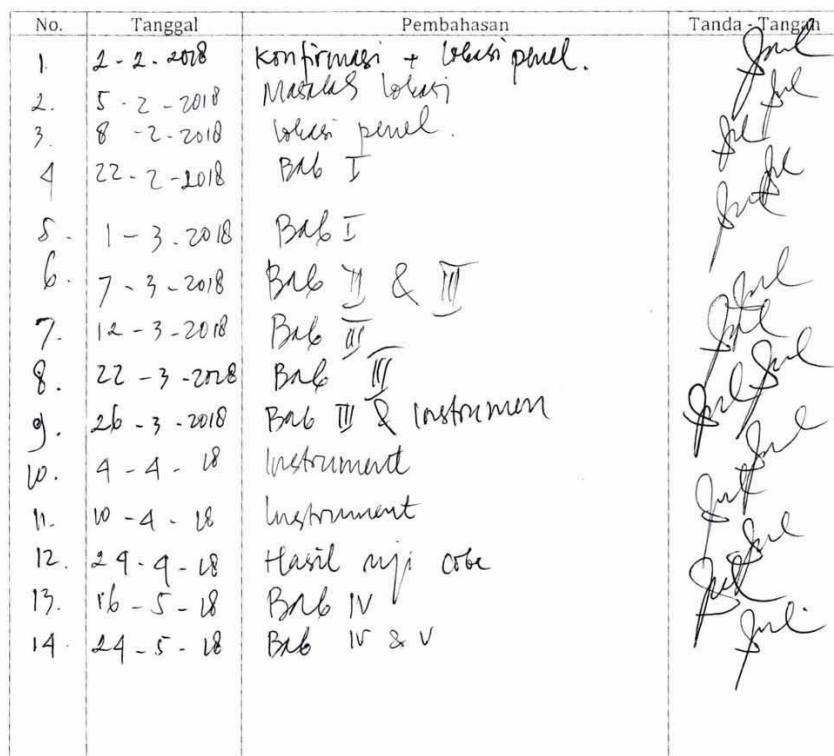 No. Tanggal Pembahasan Tanda - Tangan
1. 2 - 2 - 2018 Konfirmasi + lokasi penel.
2. 5 - 2 - 2018 Masalah lokasi
3. 8 - 2 - 2018 lokasi penel.
4 22 - 2 - 2018 Bab I
5. 1 - 3 - 2018 Bab I
6. 7 - 3 - 2018 Bab II & III
7. 12 - 3 - 2018 Bab III
8. 22 - 3 - 2018 Bab III
9. 26 - 3 - 2018 Bab III & Instrumen
10. 4 - 4 - 18 Instrument
11. 10 - 4 - 18 Instrument
12. 24 - 4 - 18 Hasil uji coba
13. 16 - 5 - 18 Bab IV
14. 24 - 5 - 18 Bab IV & V